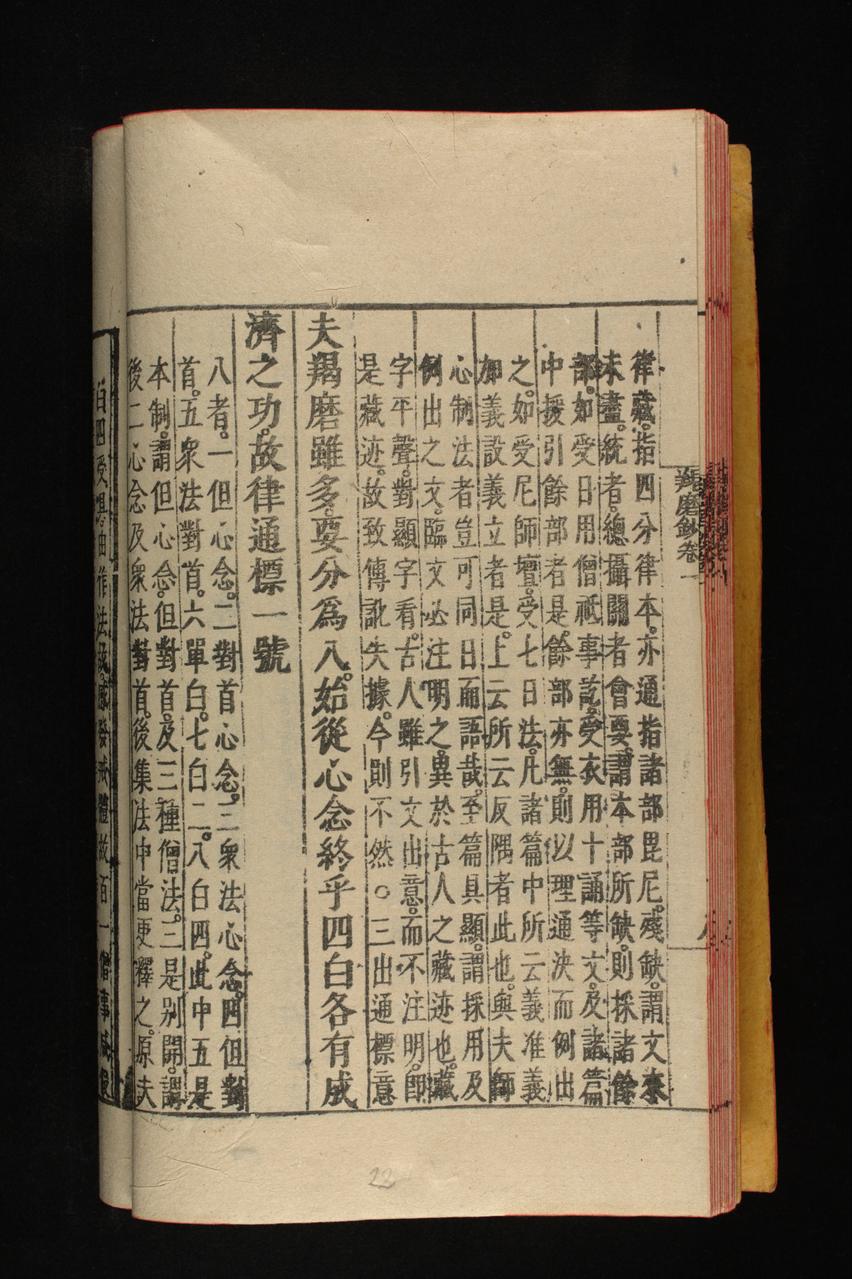 羯磨鈔卷一
律藏。指四分律本。亦通指諸部毘尼。殘缺。謂文來
未盡。統者。總攝。關者。會要。謂本部所缺。則採諸餘
部。如受日用僧祇事訖。受衣用十誦等文。及諸篇
中援引餘部者是。餘部亦無。則以理通決而例出
之。如受尼師壇。受七日法。凡諸篇中所云義准義
加義設義立者是。上云所云反隅者此也。與夫師
心制法者豈可同日而語哉。至篇具顯。謂採用及
例出之文。臨文必注明之。異於古人之藏迹也。藏
字平聲。對顯字看。古人雖引文出意。而不注明。即
是藏迹。故致傳訛失據。今則不然。○三出通標意
夫羯磨雖多。要分為八。始從心念。終乎四白。各有成
濟之功。故律通標一號
八者。一但心念。二對首心念。三眾法心念。四但對
首。五眾法對首。六單白。七白二。八白四。此中五是
本制。謂但心念。但對首。及三種僧法。三是別開。謂
後二心念及眾法對首。後集法中當更釋之。原夫